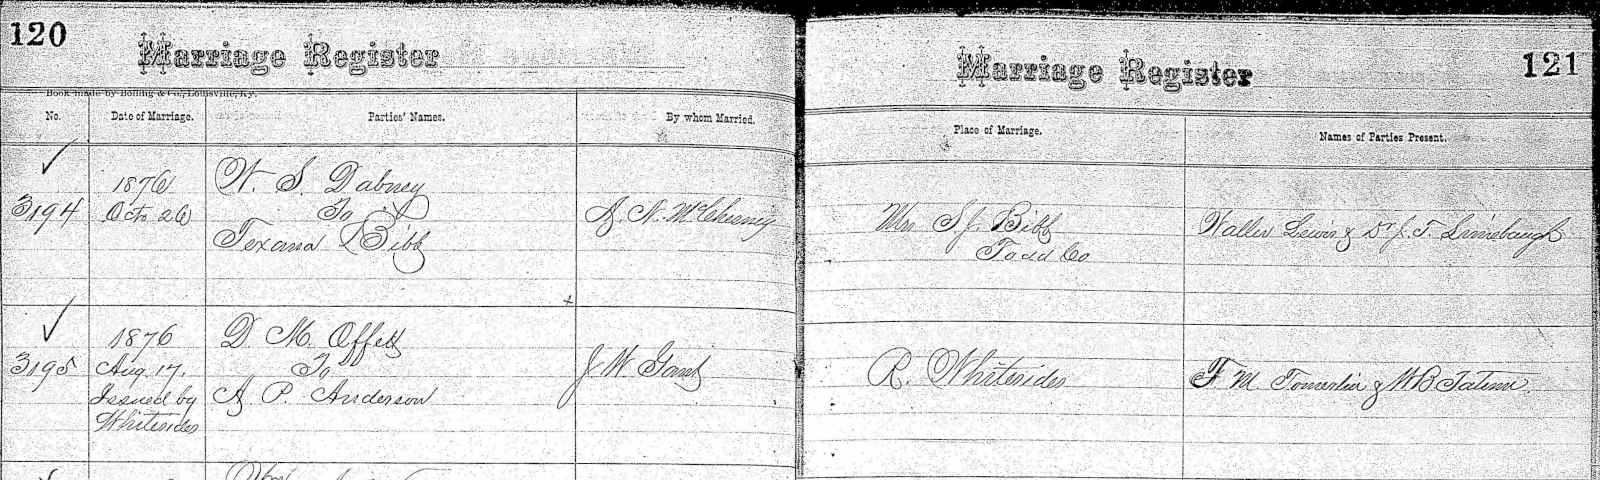 120
Marriage Register
Book made by Bolling & Co., Louisville, Ky.
No. Date of Marriage. Parties' Names. By whom Married.
3194
1876
Oct 26
W. S. Dabney
To
Texana Bibb
3195
1876
Aug. 17.
Issued by
Whitesides
D. M. Offett
To
A. P. Anderson
J W Gant
121
Marriage Register
Place of Marriage. Names of Parties Present.
Mrs S. J. Bibb
Todd Co
Waller Lewis & Dr J. T. Linebaugh
R. Whitesides
F M Tomerlin & W B Tatum